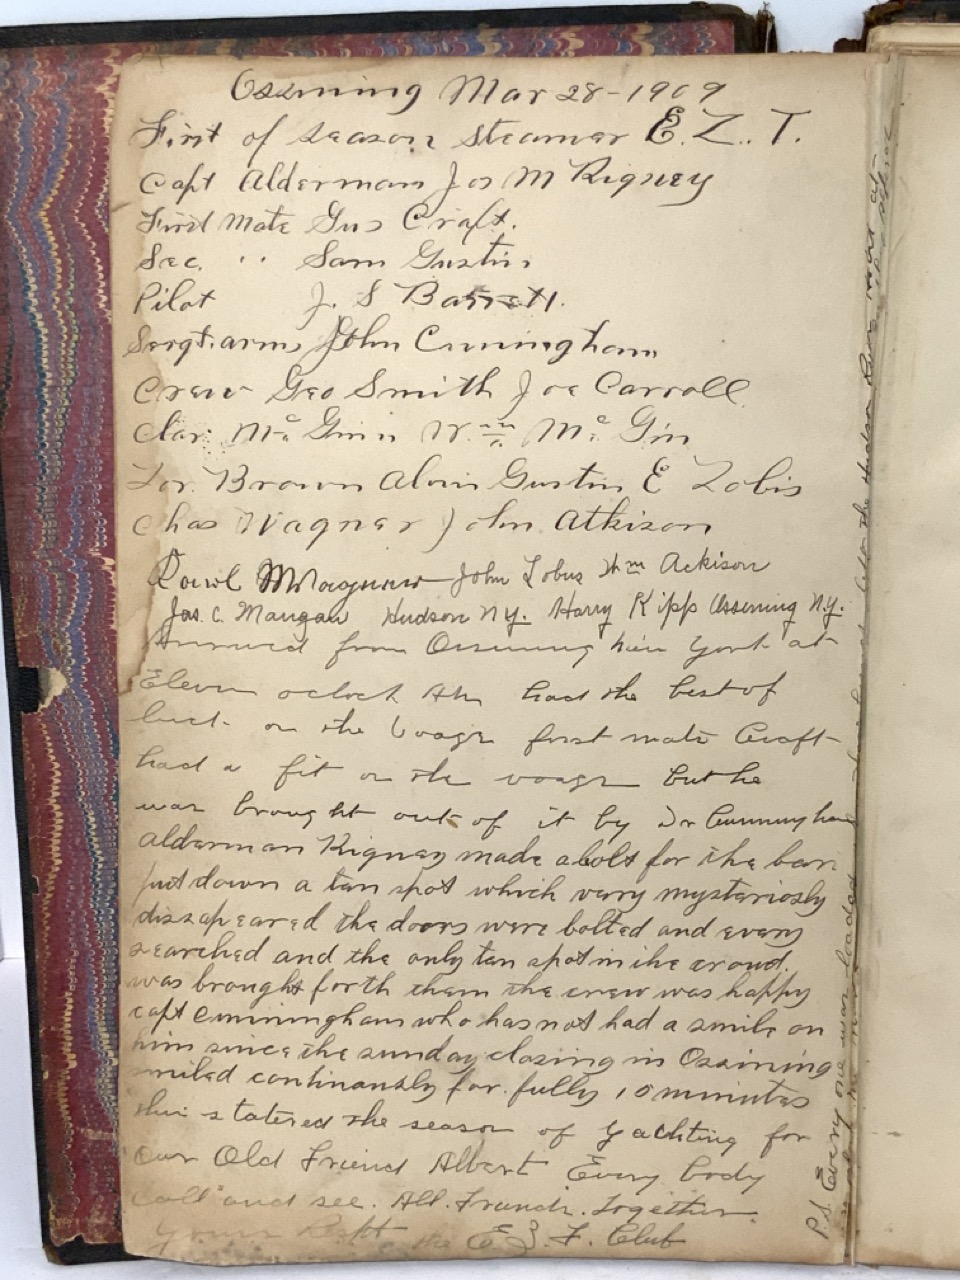 Ossining Mar 28-1909
First of season steamer E. Z. T.
Capt Alderman Jos M Rigney
First Mate Gus Craft.
Sec. " Sam Gustin
Pilot J. S Barrett.
Sergt.arms John Cuningham
Crew Geo Smith Joe Carroll
Clar. Mc Ginn Wm Mc Gin
Brown Alvin Gustin E Lobis
Chas Wagner John Atkison
John Lobus Wm Ackison
Jas. C. Mangan Hudson N.Y. Harry Kipp Ossening N.Y.
Arrived from Ossining New York at
Eleven oclock AM had the best of
luck on the Voage first mate Craft
had a fit on the voage but he
was brought out of it by Dr Cunningham
Alderman Rigney made a bolt for the bar
put down a ten spot which verry mysteriosly
dissapeared the doors were bolted and every
searched and the only ten spot in the croud
was brought forth them the crew was happy
capt Cuniningham who has not had a smile on
him since the sunday closing in Ossining
smiled continausly for fully 10 minutes
this statered the season of yachting for
our Old Friend Albert Every body
call and see. All. Together
Yours Respt the E Z. F. Club
P.S. Every one was loaded the Hudson River